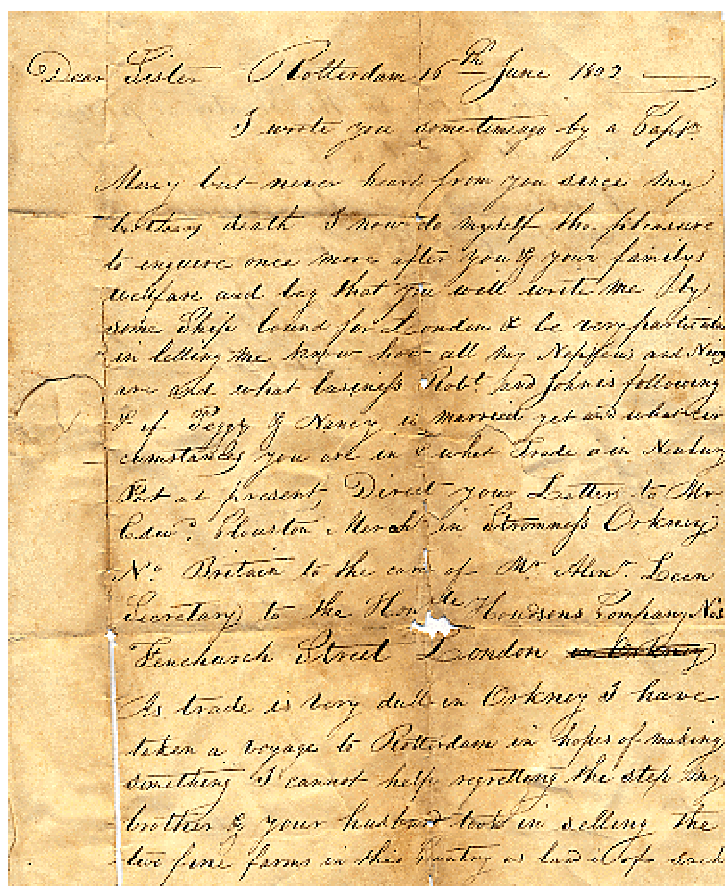 Dear Sister Rotterdam 16th June 1802
I wrote you sometimeago by a Captn
Macy but never heard from you since my
brothers death I now do myself the pleasure
to enquire once more after you & your familys
welfare and beg that you will write me by
some Ship bound for London & be very particular
in letting me know how all my Nephews and
are and what business Robt. and John is following
& if Peggy & Nancy is married yet and what cir
cumstances you are in & what Trade is in Newbury
Port at present, Direct your Letters to Mr
Edwd. Clouston Mercht in Stromness Orkney
No. Britain to the care of Mr Alexr. Lean
Secretary to the Honble Houdsons Company No
Fenchurch Street London
As trade is very dull in Orkney I have
taken a voyage to Rotterdam in hopes of making
something I cannot help regretting the step my
brother & your husband took in selling the
two fine farms in this Cuntry as land is of